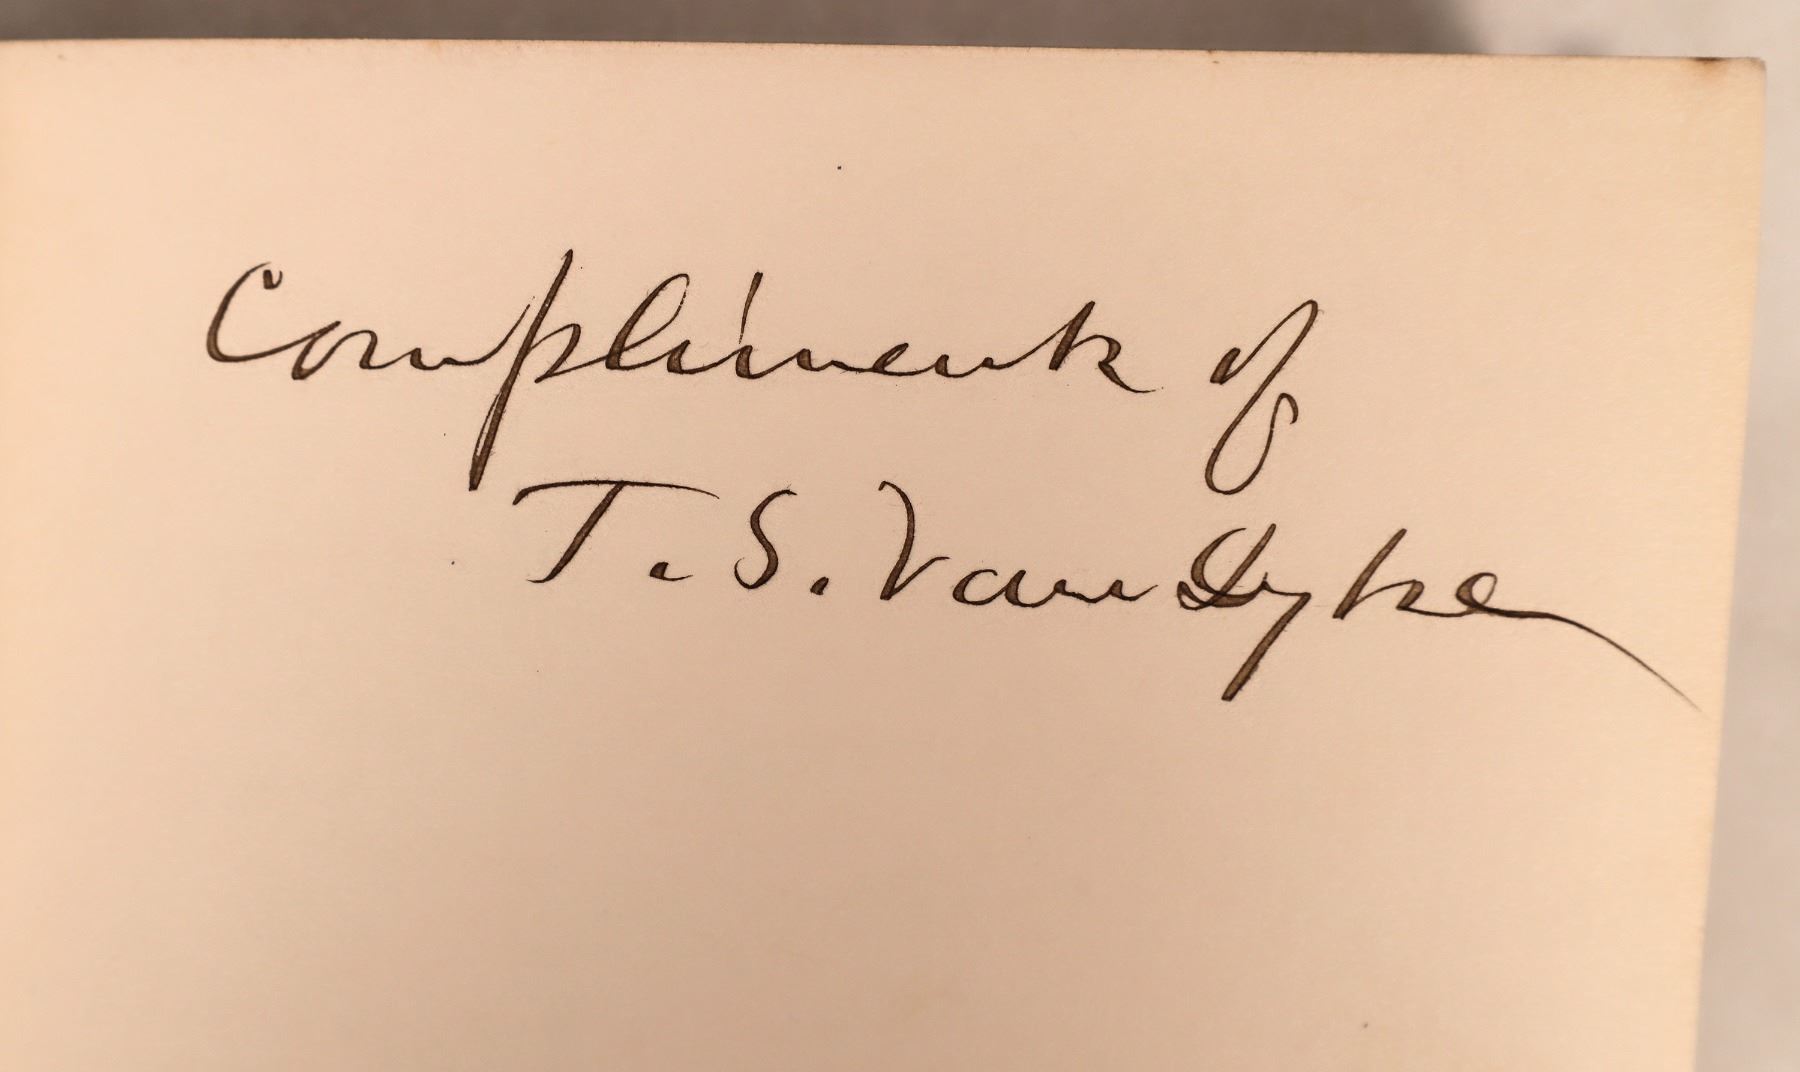 Compliments of
T. S. Van Dyke